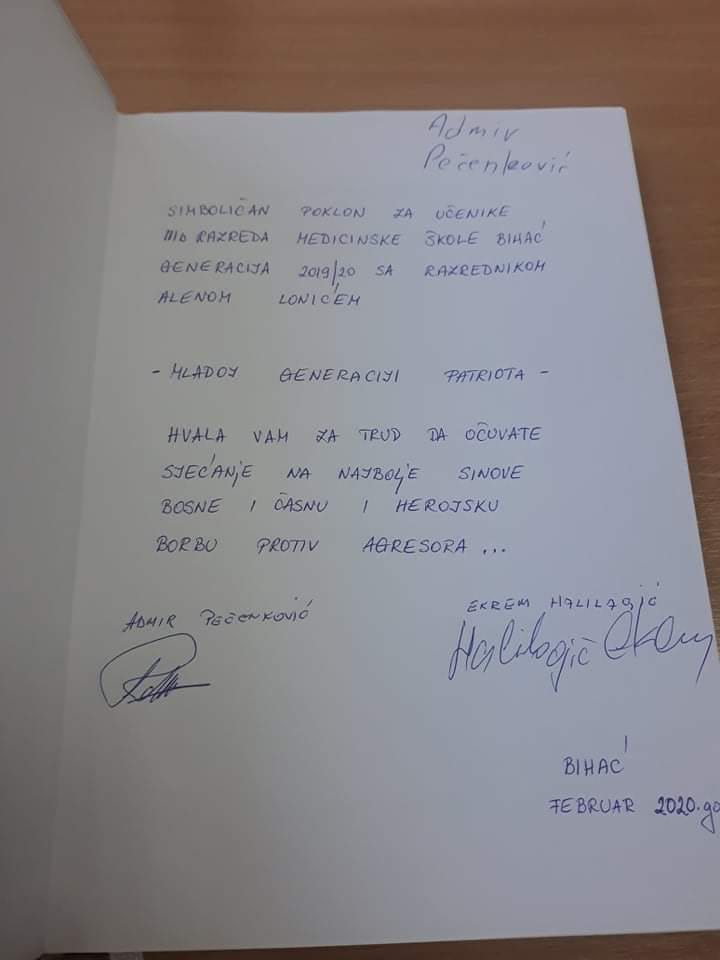 Admir
Pečenković
SIMBOLIČAN POKLON ZA UČENIKE
IIIb RAZREDA MEDICINSKE ŠKOLE BIHAĆ
GENERACIJA 2019/20 SA RAZREDNIKOM
ALENOM LONIĆEM
- MLADOJ GENERACIJI PATRIOTA -
HVALA VAM ZA TRUD DA OČUVATE
SJEĆANJE NA NAJBOLJE SINOVE
BOSNE I ČASNU I HEROJSKU
BORBU PROTIV AGRESORA ...
ADMIR PEČENKOVIĆ
EKREM HALILAGIĆ
Halilagić Ekrem
BIHAĆ
FEBRUAR 2020.go